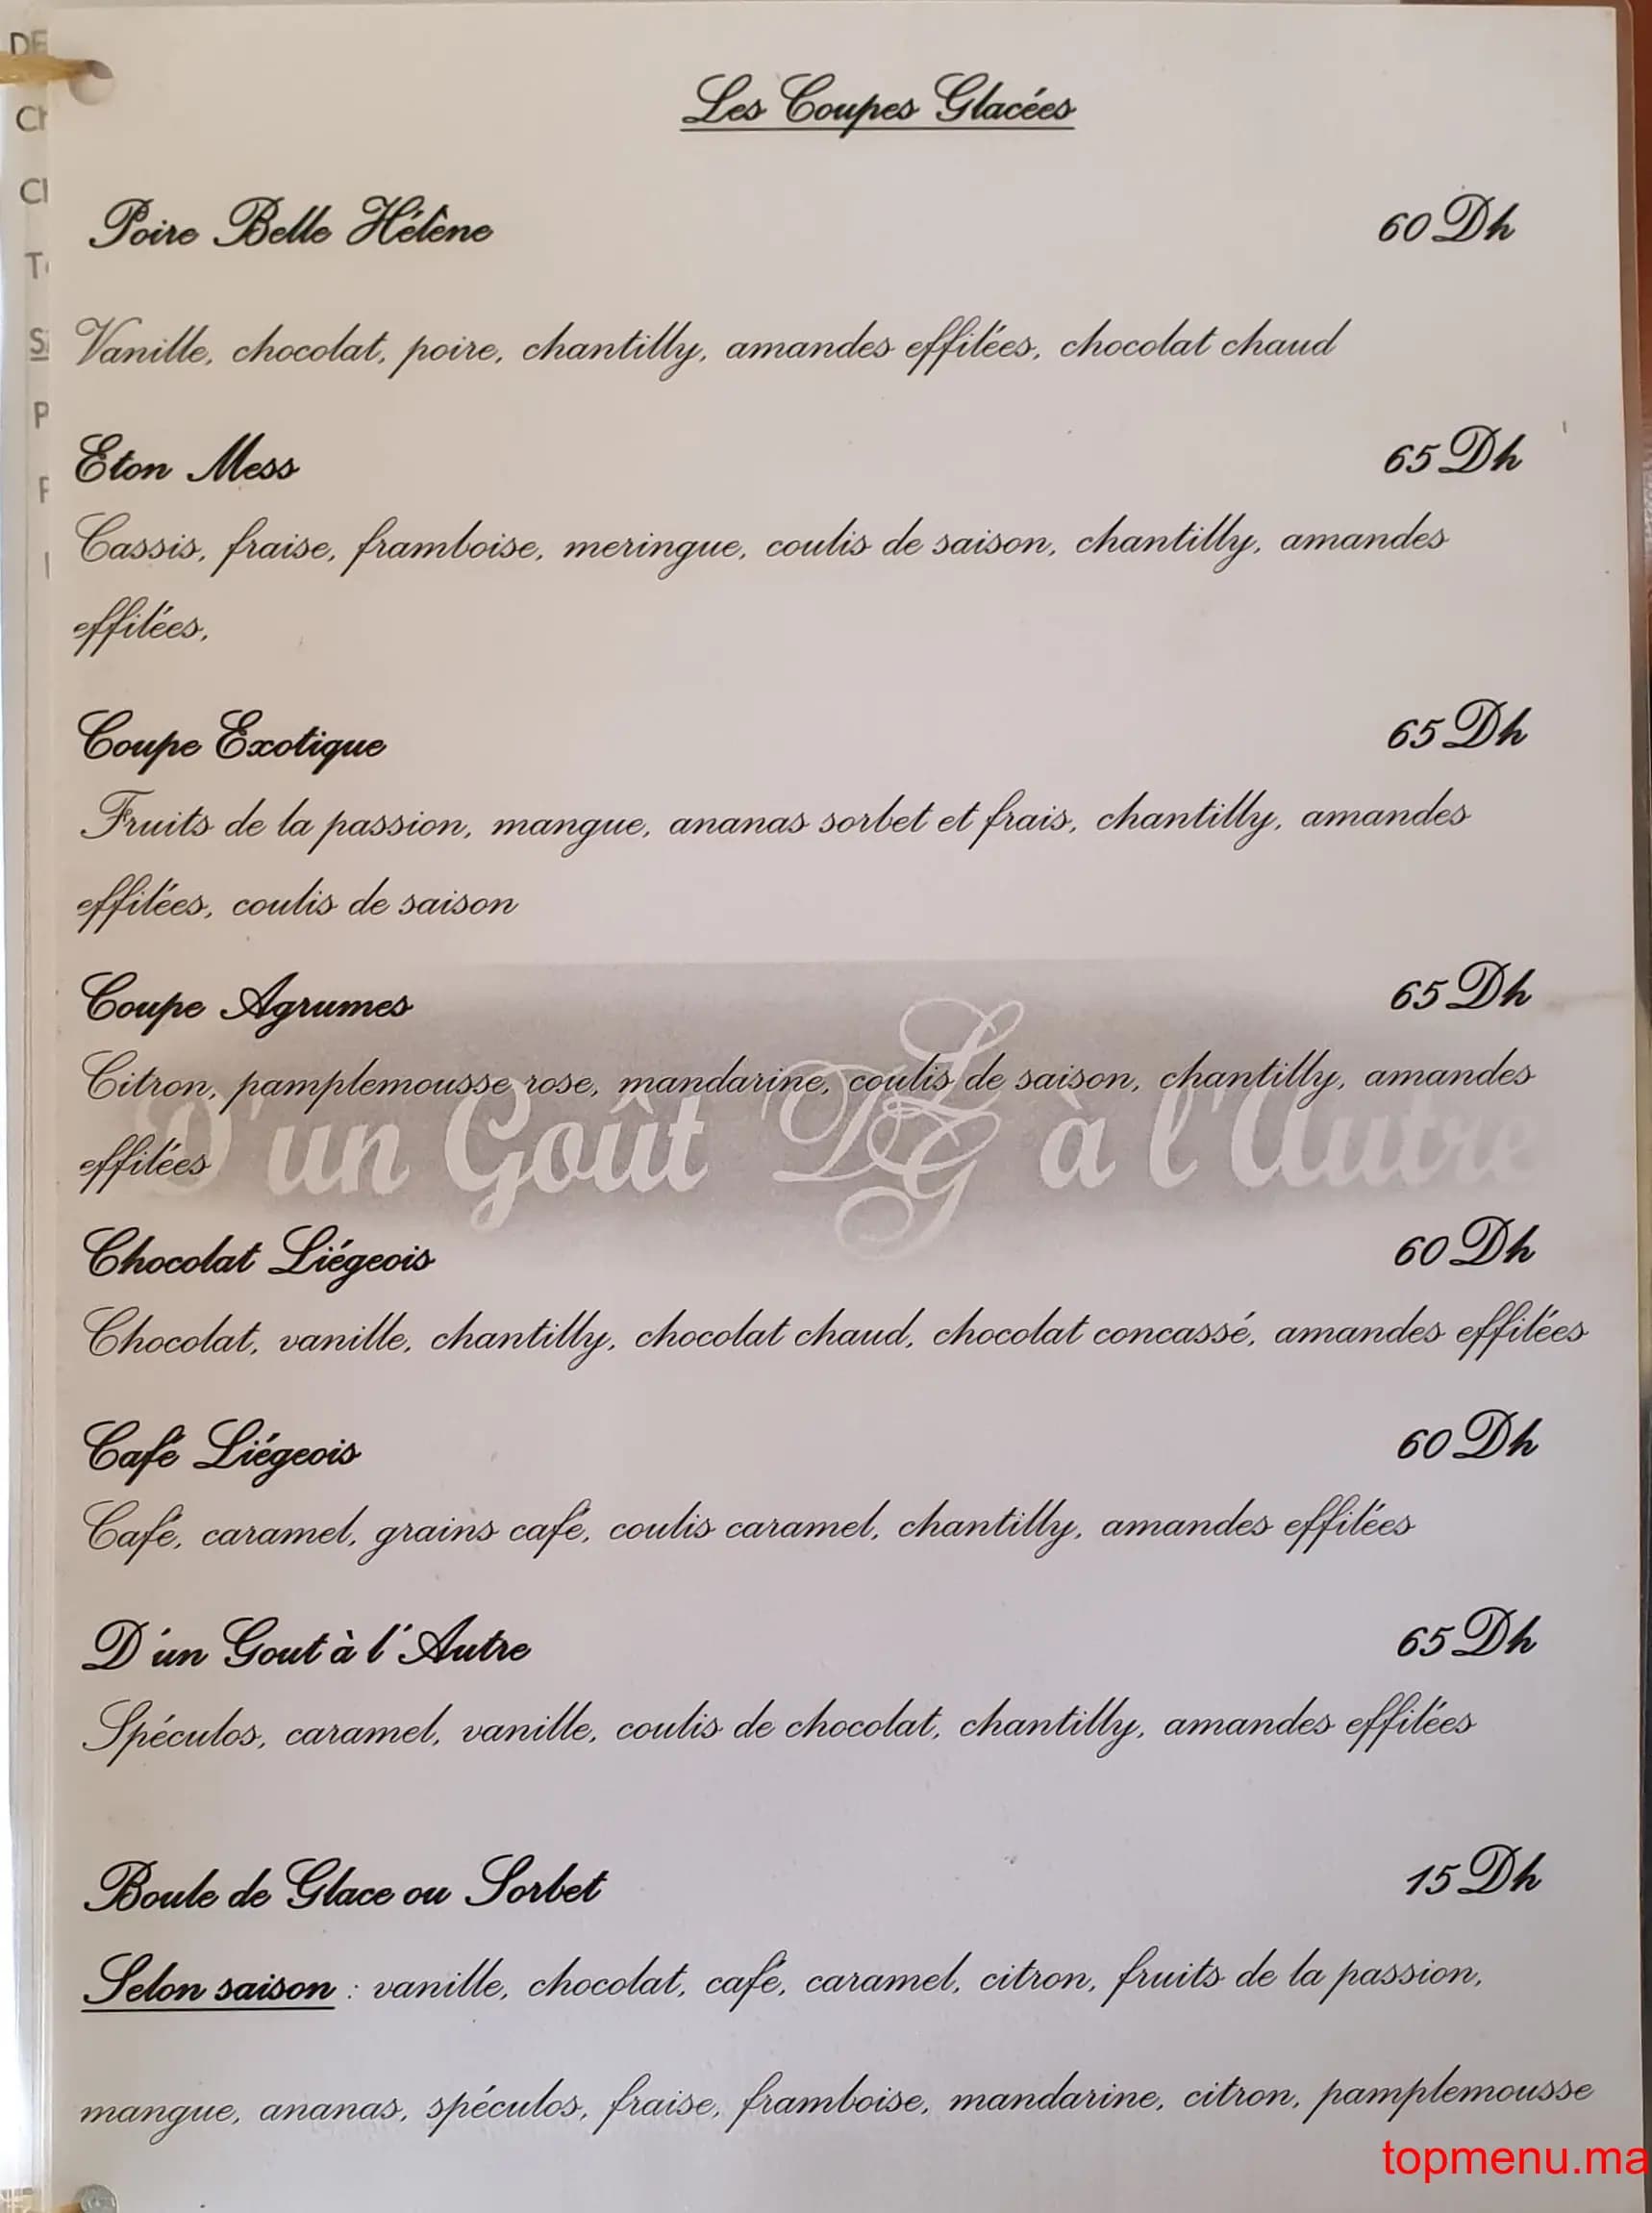 Les Coupes Glacées
Poire Belle Hélène 60 Dh
Vanille, chocolat, poire, chantilly, amandes effilées, chocolat chaud
Eton Mess 65 Dh
Cassis, fraise, framboise, meringue, coulis de saison, chantilly, amandes
effilées,
Coupe Exotique 65 Dh
Fruits de la passion, mangue, ananas sorbet et frais, chantilly, amandes
effilées, coulis de saison
Coupe Agrumes 65 Dh
Citron, pamplemousse rose, mandarine, coulis de saison, chantilly, amandes
D'un Goût à l'Autre
effilées
Chocolat Liégeois 60 Dh
Chocolat, vanille, chantilly, chocolat chaud, chocolat concassé, amandes effilées
Café Liégeois 60 Dh
Café, caramel, grains café, coulis caramel, chantilly, amandes effilées
D'un Gout à l'Autre 65 Dh
Spéculos, caramel, vanille, coulis de chocolat, chantilly, amandes effilées
Boule de Glace ou Sorbet 15 Dh
Selon saison : vanille, chocolat, café, caramel, citron, fruits de la passion,
mangue, ananas, spéculos, fraise, framboise, mandarine, citron, pamplemousse
topmenu.ma